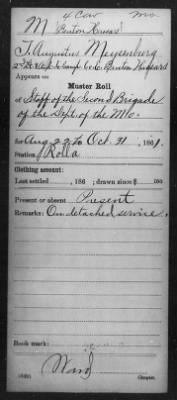 4 Cav Mo
M Benton Hussars
T. Augustus Meysenburg
2d Lt & Adj't
Benton Hussars
Appears on
Muster Roll
of Staff of the Second Brigade
of the Dep't of the Mo.
for Aug 22 to Oct 31, 1861.
Station Rolla
Clothing account:
Last settled , 186 ; drawn since $ 100
Present or absent Present
Remarks: On detached service.
Book mark:
Ward
Copyist.